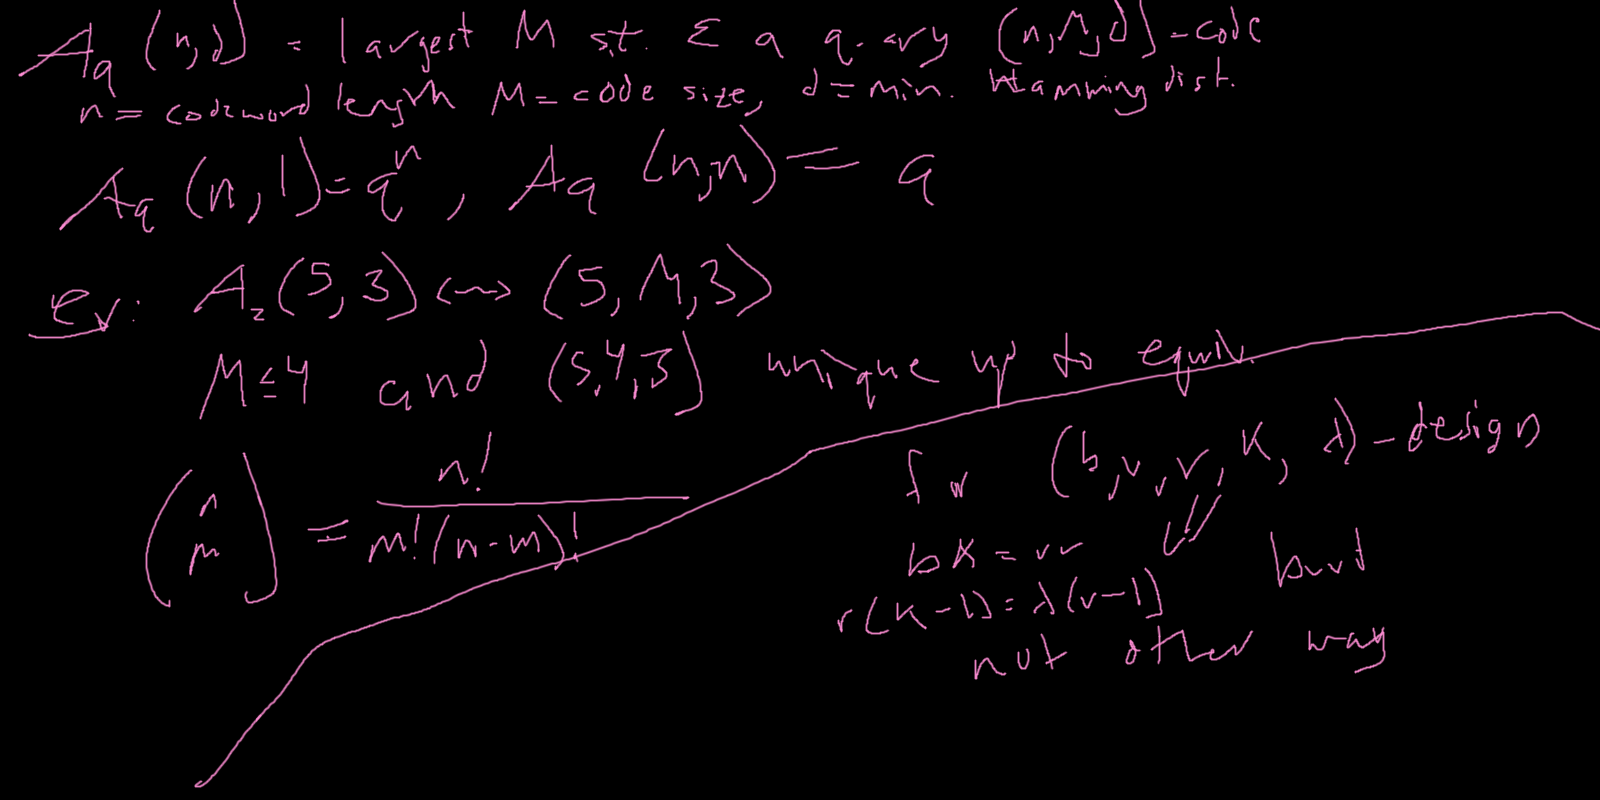 A_q (n,d) = largest M s.t. Σ a q-ary (n,M,d)-code
n = codeword length M = code size, d = min. Hamming dist.
A_q (n,1) = q^n, A_q (n,n) = q
ex: A_2(5,3) ↔ (5,M,3)
M ≤ 4 and (5,4,3) unique up to equiv.
(n m) = n! / m!(n-m)!
for (b,v,r,k,λ)-design
⇓
bk = vr
r(k-1) = λ(v-1) but
not other way